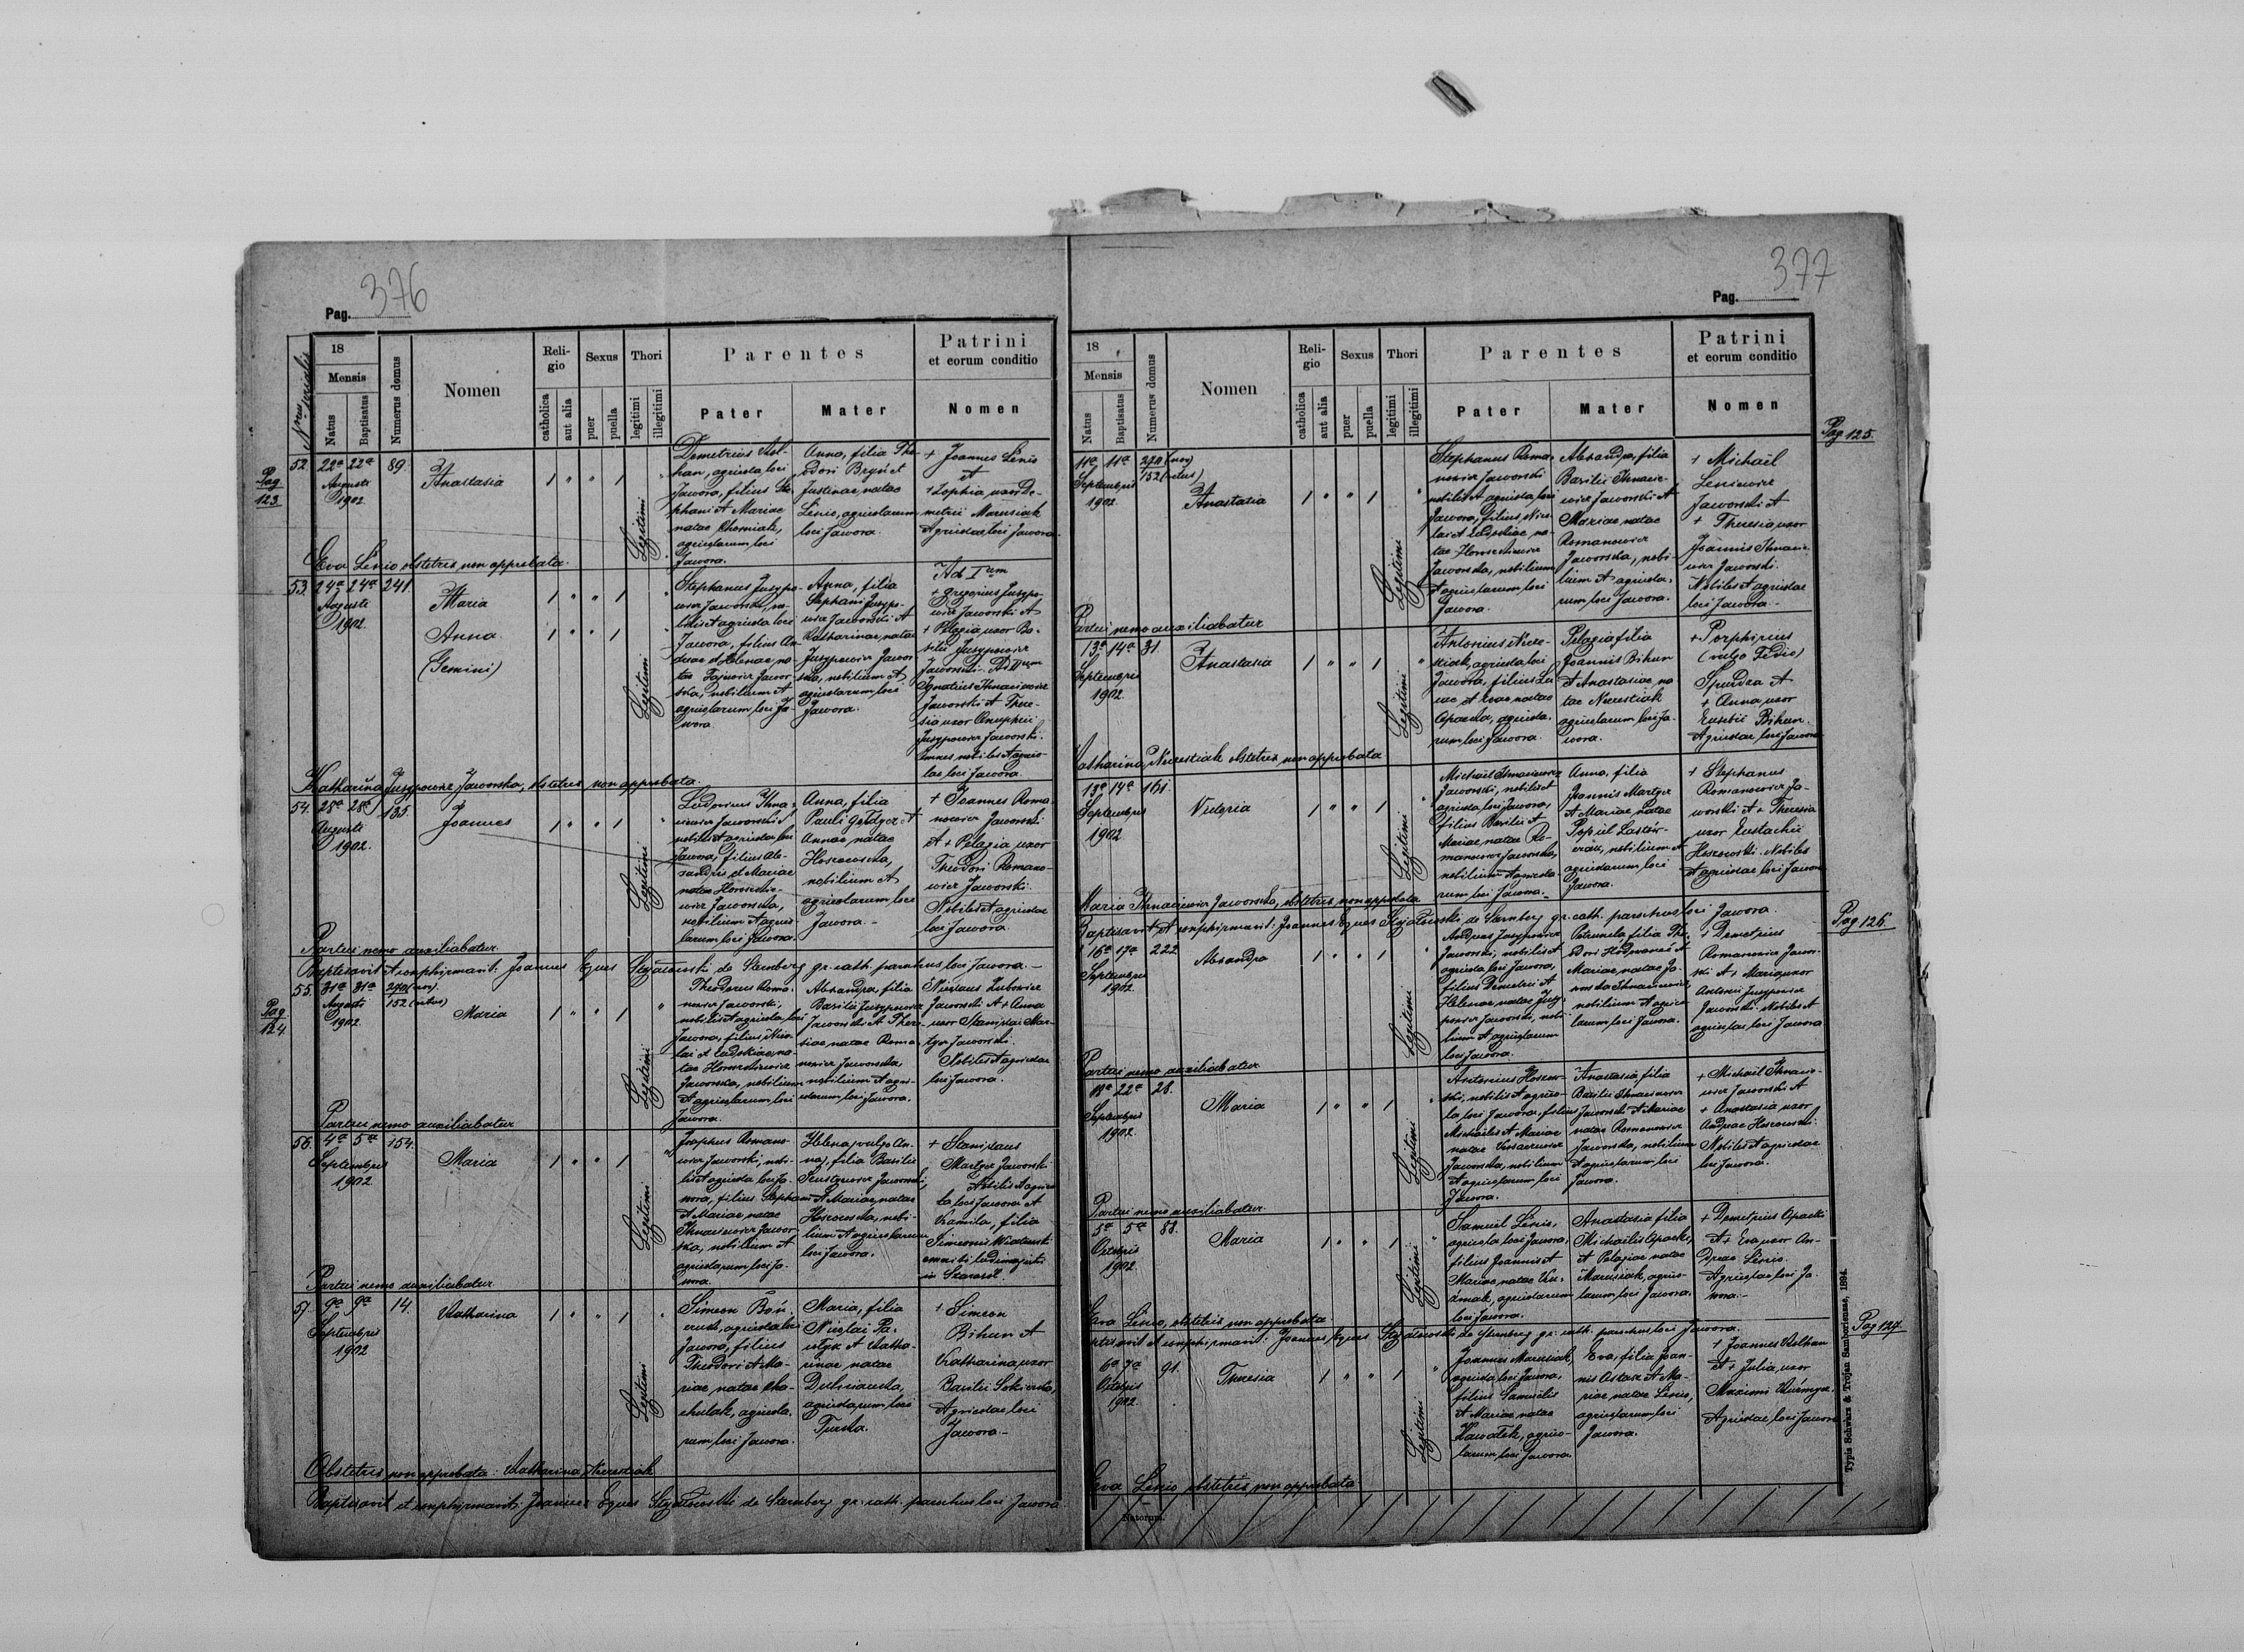 376
Pag.
Nrus serialis
18
Mensis
Natus
Baptisatus
Numerus domus
Nomen
Religio
catholica
aut alia
Sexus
puer
puella
Thori
legitimi
illegitimi
Parentes
Pater
Mater
Patrini
et eorum conditio
Nomen
Pag
123
52. 22a 22a 89.
Augusti
1902
Anastasia
Legitimi
agricola loci
Jawora, filius Ste-
phani et Mariae
natae
agricolarum loci
Jawora.
Anna, filia The-
odori
Justinae natae
Lenio, agricolarum
loci Jawora.
+ Joannes Lenio
et
+ Zophia uxor De-
metrii Marusiak
Agricolae loci Jawora.
Eva Lenio obstetrix non approbata.
53. 24a 24a 241.
Augusti
1902
Maria
Anna
(Gemini)
Legitimi
Stephanus Jusypo-
wicz Jaworski, no-
bilis et agricola loci
Jawora, filius An-
dreae et Helenae na-
tae
nobilium et
agricolarum loci Ja-
wora
Anna, filia
Stephani Jusypo-
wicz Jaworski et
Katharinae, natae
Jusypowicz Jawor-
ska, nobilium et
agricolarum loci
Jawora.
Ad Ium
+ Gregorius Jusypo-
wicz Jaworski et
+ Pelagia uxor Ba-
silii Jusypowicz
Jaworski. Ad IIum
Ignatius Ihnaciewicz
Jaworski et There-
sia uxor Onuphrii
Jusypowicz Jaworski.
Omnes nobiles et agrico-
lae loci Jawora.
Katharina Jusypowicz Jaworska, obstetrix non approbata.
54. 28a 28a 135.
Augusti
1902.
Joannes
Legitimi
Ludovicus Ihna-
ciewicz Jaworski et
nobilis et agricola loci
Jawora, filius Ale-
xandri et Mariae
natae
Jaworska,
nobilium et agrico-
larum loci Jawora.
Anna, filia
Pauli
Annae natae
Hoszowska,
nobilium et
agricolarum loci
Jawora.-
+ Joannes Roma-
nowicz Jaworski
et + Pelagia uxor
Theodori Romano-
wicz Jaworski.
Nobiles et agricolae
loci Jawora.
Partui nemo auxiliabatur.
Baptisavit et confirmavit: Joannes Eques de Sternberg gr. cath. parochus loci Jawora.-
Pag
124
55. 31a 31a 270 (nov).
152 (vetus)
Augusti
1902
Maria
Legitimi
Theodorus Roma-
nowicz Jaworski,
nobilis et agricola loci
Jawora, filius Nico-
lai et Eudokiae, na-
tae
Jaworska, nobilium
et agricolarum loci
Jawora.
Alexandra, filia
Basilii Jusypowicz
Jaworski et There-
siae natae Roma-
nowicz Jaworska,
nobilium et agri-
colarum loci Jawora.
Nicolaus
Jaworski et + Anna
uxor Stanislai Mar-
tycz Jaworski.
Nobiles et agricolae
loci Jawora.
Partui nemo auxiliabatur
56. 4a 5a 154.
Septembris
1902
Maria
Legitimi
Josephus Romano-
wicz Jaworski, nobi-
lis et agricola loci Ja-
wora, filius Stephani
et Mariae natae
Ihnaciewicz Jawor-
ska, nobilium et
agricolarum loci Ja-
wora.
Helena, vulgo An-
na, filia Basilii
Jaworski,
et Mariae, natae
Hoszowska, nobi-
lium et agricolarum
loci Jawora.
+ Stanislaus
Martycz Jaworski
Nobilis et agrico-
la loci Jawora et
Kamila, filia
Simeonis
in
Partui nemo auxiliabatur
57 9a 9a 14.
Septembris
1902
Katharina
Legitimi
Simeon
agricola loci
Jawora, filius
Theodori et Ma-
riae natae
agricola-
rum loci Jawora.
Maria, filia
Nicolai
et Katha-
rinae natae
agricolarum loci
Turka.
+ Simeon
Bihun et
Katharina uxor
Basilii
Agricolae loci
Jawora -
Obstetrix non approbata: Katharina
Baptisavit et confirmavit: Joannes Eques de Sternberg gr. cath. parochus loci Jawora
377
Pag.
18
Mensis
Natus
Baptisatus
Numerus domus
Nomen
Religio
catholica
aut alia
Sexus
puer
puella
Thori
legitimi
illegitimi
Parentes
Pater
Mater
Patrini
et eorum conditio
Nomen
Pag 125.
11a 11a 270 (nov)
152 (vetus)
Septembris
1902
Anastasia
Legitimi
Stephanus Roma-
nowicz Jaworski
nobilis et agricola loci
Jawora, filius Nico-
lai et Eudokiae na-
tae
Jaworska, nobilium
et agricolarum loci
Jawora.
Alexandra, filia
Basilii Ihnacie-
wicz Jaworski et
Mariae natae
Romanowicz
Jaworska, nobi-
lium et agricola-
rum loci Jawora.
+ Michaël
Jaworski et
+ Theresia uxor
Joannis Ihnacie-
wicz Jaworski.
Nobiles et agricolae
loci Jawora.-
Partui nemo auxiliabatur
13a 14a 31
Septembris
1902
Anastasia
Legitimi
Antonius
agricola loci
Jawora, filius Lu-
cae et Evae natae
Opacka, agricola-
rum loci Jawora.
Pelagia filia
Joannis Bihun
et Anastasiae na-
tae
agricolarum loci Ja-
wora.
+ Porphirius
(vulgo Fedio)
et
+ Anna uxor
Eusebii Bihun.
Agricolae loci Jawora
Katharina obstetrix non approbata
13a 14a 161.
Septembris
1902
Legitimi
Michaël Ihnaciewicz
Jaworski, nobilis et
agricola loci Jawora,
filius Basilii et
Mariae natae Ro-
manowicz Jaworska,
nobilium et agricola-
rum loci Jawora.-
Anna, filia
Joannis Martycz
et Mariae, natae
Popiel
nobilium et
agricolarum loci
Jawora.
+ Stephanus
Romanowicz Ja-
worski et + Theresia
uxor Eustachii
Hoszowski. Nobiles
et agricolae loci Jawora
Maria Ihnaciewicz Jaworska, obstetrix non approbata
Baptisavit et confirmavit: Joannes Eques de Sternberg gr. cath. parochus loci Jawora.
Pag 126.
16a 17a 222
Septembris
1902
Alexandra
Legitimi
Andreas Jusypowicz
Jaworski, nobilis et
agricola loci Jawora,
filius Demetrii et
Helenae natae Jusy-
powicz Jaworski, nobi-
lium et agricolarum
loci Jawora.
Petronela, filia The-
odori et
Mariae, natae Ja-
worska Ihnaciewicz,
nobilium et agrico-
larum loci Jawora.
+ Demetrius
Romanowicz Jawor-
ski et + Maria uxor
Antonii Jusypowicz
Jaworski. Nobiles et
agricolae loci Jawora
Partui nemo auxiliabatur
18a 22a 28.
Septembris
1902
Maria
Legitimi
Antonius Hoszow-
ski, nobilis et agrico-
la loci Jawora, filius
Michaëlis et Mariae
natae
Jaworska, nobilium
et agricolarum loci
Jawora.
Anastasia, filia
Basilii Ihnaciewicz
Jaworski et Mariae
natae Romanowicz
Jaworska, nobilium
et agricolarum loci
Jawora.
+ Michaël Ihnacie-
wicz Jaworski et
+ Anastasia uxor
Andreae Hoszowski.
Nobiles et agricolae
loci Jawora.
Partui nemo auxiliabatur
5a 5a 88.
Octobris
1902
Maria
Legitimi
Samuel Lenio,
agricola loci Jawora,
filius Joannis et
Mariae, natae
agricolarum
loci Jawora.
Anastasia filia
Michaëlis Opacki,
et Pelagiae natae
Marusiak, agrico-
larum loci Jawora.
+ Demetrius Opacki
et + Eva uxor An-
dreae Lenio.
Agricolae loci Ja-
wora.-
Eva Lenio, obstetrix non approbata
Baptisavit et confirmavit: Joannes Eques de Sternberg gr. cath. parochus loci Jawora.
Pag 127.
6a 7a 91.
Octobris
1902
Theresia
Legitimi
Joannes Marusiak,
agricola loci Jawora,
filius Samuelis
et Mariae natae
agrico-
larum loci Jawora
Eva, filia Joan-
nis et Ma-
riae natae Lenio,
agricolarum loci
Jawora.
+ Joannes
et + Julia, uxor
Maximi
Agricolae loci Jawora
Eva Lenio obstetrix non approbata
Natorum.
Typis Schwarz & Trojan Samboriensis, 1894.